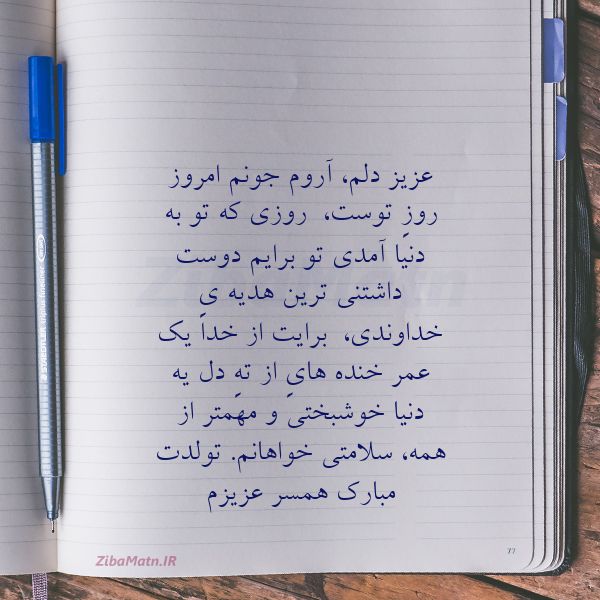 عزیز دلم، آروم جونم امروز
روزِ توست، روزی که تو به
دنیا آمدی تو برایم دوست
داشتنی ترین هدیه یِ
خداوندی، برایت از خدا یک
عمر خنده هایِ از تهِ دل یه
دنیا خوشبختی و مهمتر از
همه، سلامتی خواهانم. تولدت
مبارک همسر عزیزم
ZibaMatn.IR
77
STAEDTLER triplus fineliner
ZibaMatn